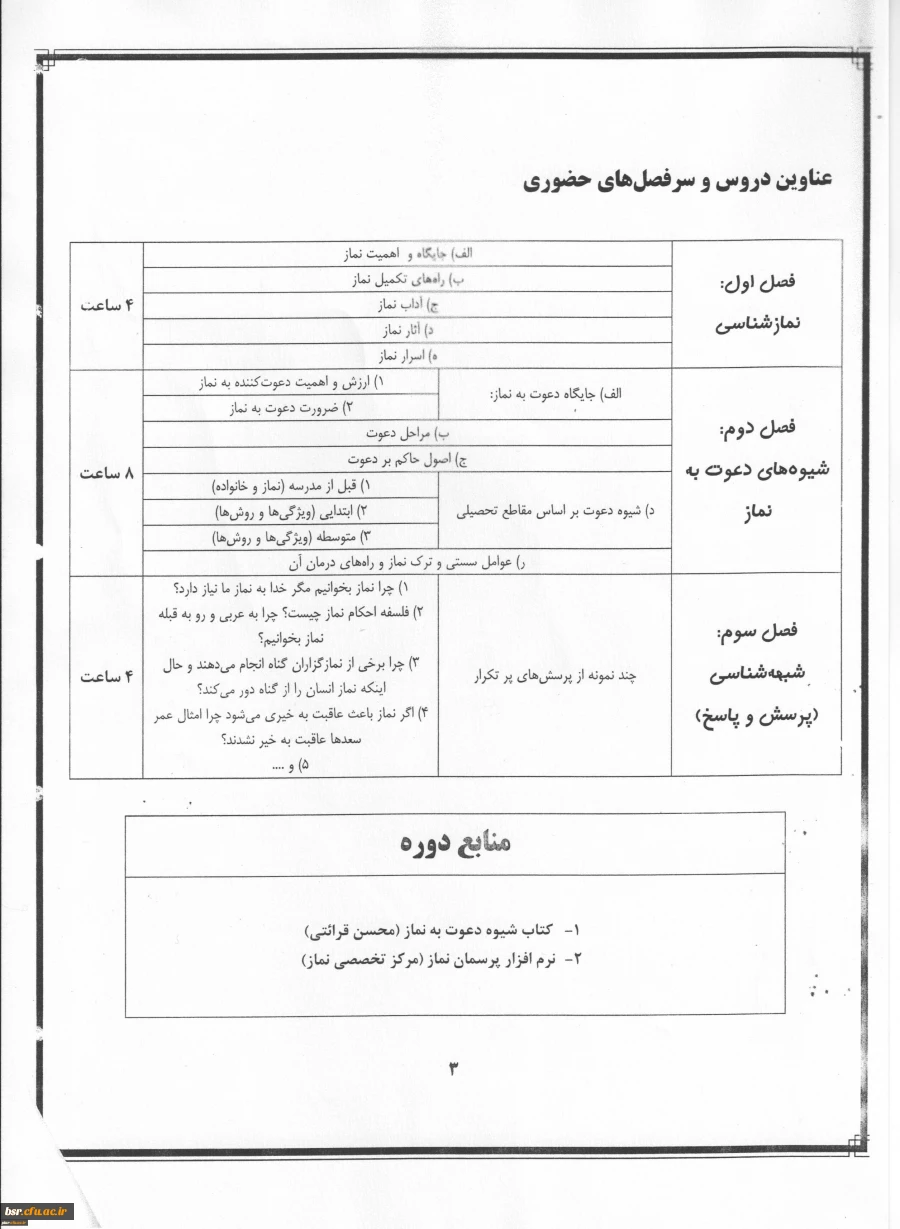 عناوین دروس و سرفصل‌های حضوری
فصل اول:
نمازشناسی
الف) جایگاه و اهمیت نماز
ب) راه‌های تکمیل نماز
ج) آداب نماز
د) آثار نماز
ه) اسرار نماز
۴ ساعت
فصل دوم:
شیوه‌های دعوت به
نماز
الف) جایگاه دعوت به نماز:
۱) ارزش و اهمیت دعوت‌کننده به نماز
۲) ضرورت دعوت به نماز
ب) مراحل دعوت
ج) اصول حاکم بر دعوت
د) شیوه دعوت بر اساس مقاطع تحصیلی
۱) قبل از مدرسه (نماز و خانواده)
۲) ابتدایی (ویژگی‌ها و روش‌ها)
۳) متوسطه (ویژگی‌ها و روش‌ها)
ر) عوامل سستی و ترک نماز و راه‌های درمان آن
۸ ساعت
فصل سوم:
شبهه‌شناسی
(پرسش و پاسخ)
چند نمونه از پرسش‌های پر تکرار
۱) چرا نماز بخوانیم مگر خدا به نماز ما نیاز دارد؟
۲) فلسفه احکام نماز چیست؟ چرا به عربی و رو به قبله
نماز بخوانیم؟
۳) چرا برخی از نمازگزاران گناه انجام می‌دهند و حال
اینکه نماز انسان را از گناه دور می‌کند؟
۴) اگر نماز باعث عاقبت به خیری می‌شود چرا امثال عمر
سعدها عاقبت به خیر نشدند؟
۵) و ....
۴ ساعت
منابع دوره
۱- کتاب شیوه دعوت به نماز (محسن قرائتی)
۲- نرم افزار پرسمان نماز (مرکز تخصصی نماز)
۳
bsr.cfu.ac.ir
bsr.cfu.ac.ir